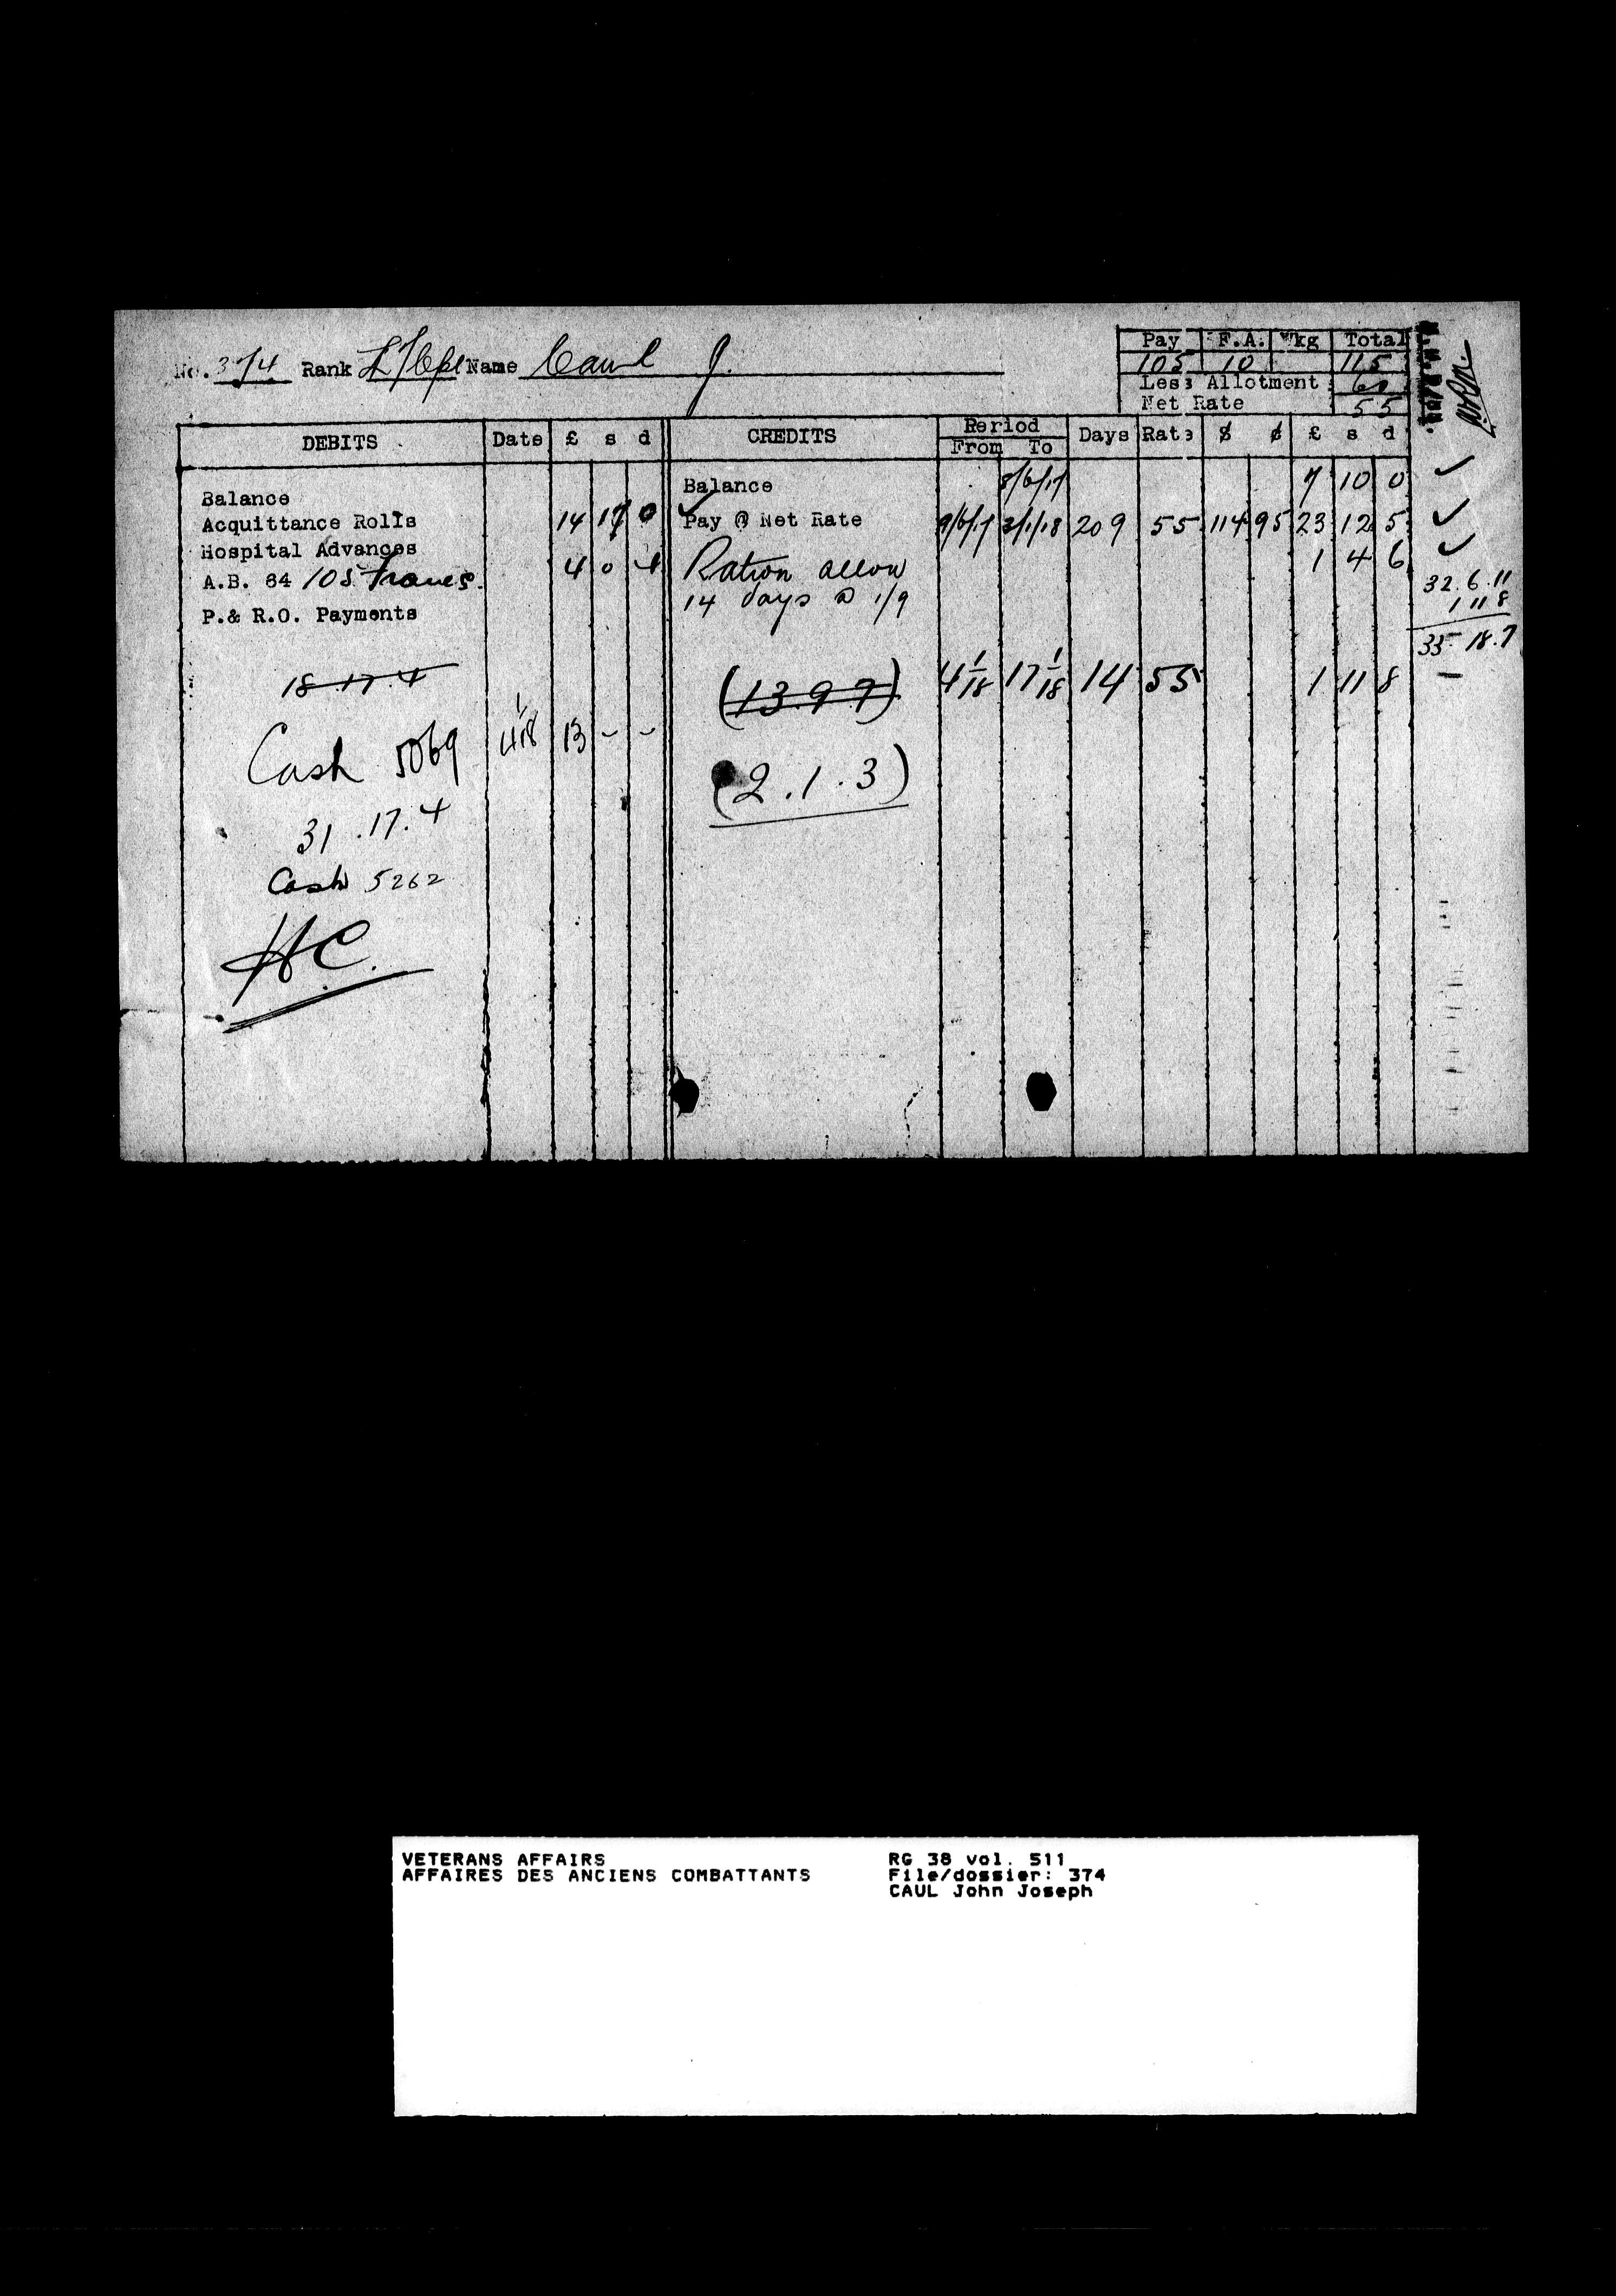 No. 374 Rank L/Cpl Name Caul J.
Pay F.A. Wkg Total
105 10 115
Less Allotment 60
Net Rate 55
DEBITS Date £ s d CREDITS Period From To Days Rate $ ¢ £ s d
Balance
Balance 8/6/17 7 10 0
Acquittance Rolls 14 17 0
Pay @ Net Rate 9/6/17 3/1/18 209 55 114 95 23 12 5
Hospital Advances
A.B. 64 105 francs. 4 0 4
Ration allow 1 4 6
14 days @ 1/9
P.& R.O. Payments
32.6.11
1 11 8
33 18.7
18 17 4
(13 9 7)
4 1/18 17 1/18 14 55 1 11 8
Cash 5069 4 1/18 13 - -
(2.1.3)
31.17.4
Cash 5262
HC.
VETERANS AFFAIRS
AFFAIRES DES ANCIENS COMBATTANTS
RG 38 vol. 511
File/dossier: 374
CAUL John Joseph